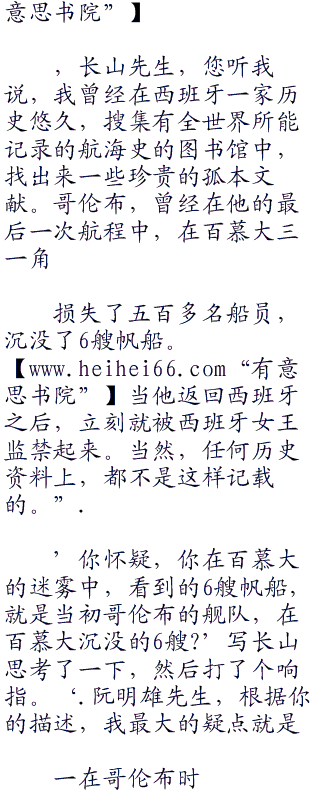 意思书院”】
，长山先生，您听我
说，我曾经在西班牙一家历
史悠久，搜集有全世界所能
记录的航海史的图书馆中，
找出来一些珍贵的孤本文
献。哥伦布，曾经在他的最
后一次航程中，在百慕大三
一角
损失了五百多名船员，
沉没了6艘帆船。
【www.heihei66.com“有意
思书院”】当他返回西班牙
之后，立刻就被西班牙女王
监禁起来。当然，任何历史
资料上，都不是这样记载
的。”.
’你怀疑，你在百慕大
的迷雾中，看到的6艘帆船，
就是当初哥伦布的舰队，在
百慕大沉没的6艘?’写长山
思考了一下，然后打了个响
指。‘.阮明雄先生，根据你
的描述，我最大的疑点就是
一在哥伦布时